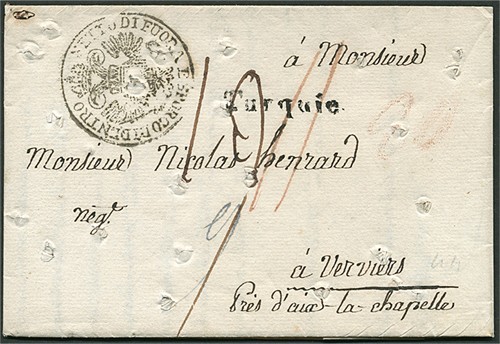 NETTO DI FUORA E SPORCO DI DENTRO
à Monsieur
Turquie.
Monsieur Nicolas henrard
négt.
à Verviers
Près d'aix-la-chapelle